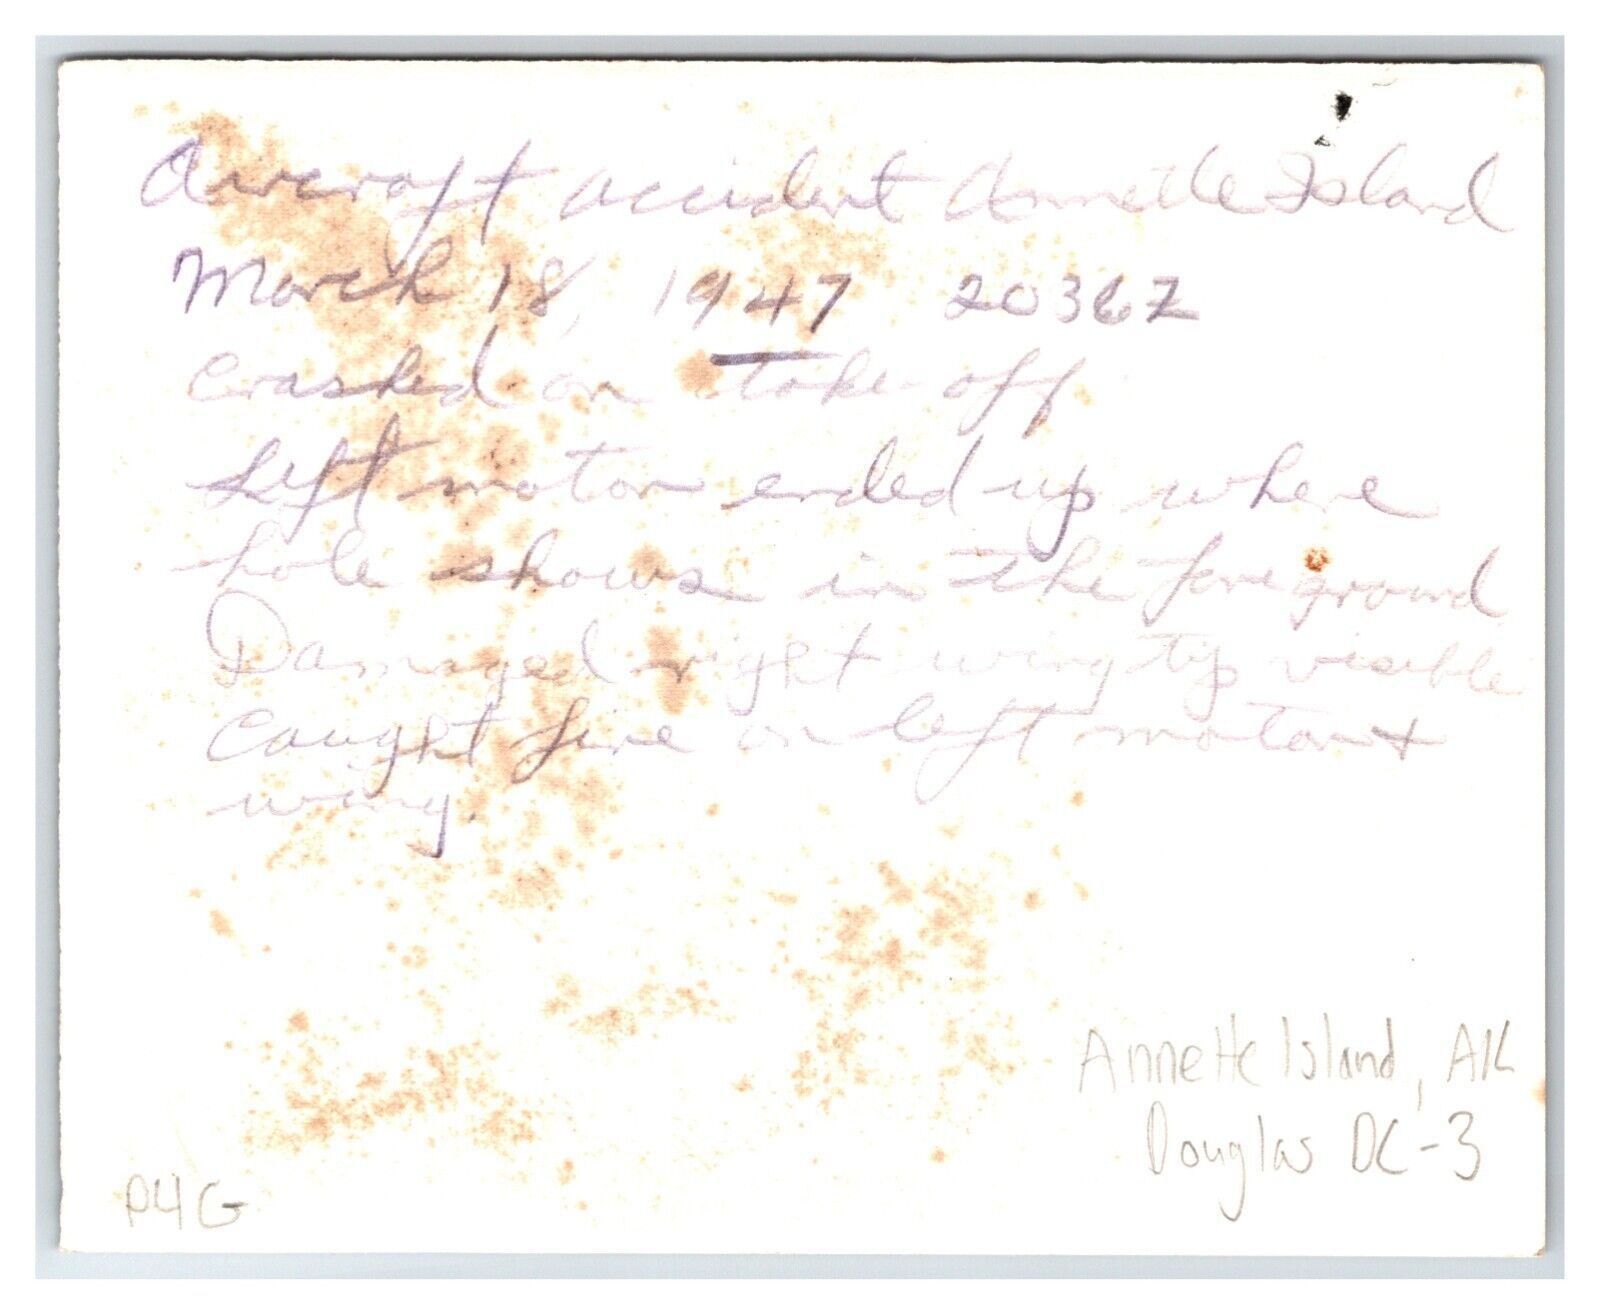 Aircraft accident Annette Island
March 18, 1947 2036Z
Crashed on take off
Left motor ended up where
hole shows in the foreground
Damaged right wing tip visible
Caught fire on left motor +
wing.
Annette Island, AK
Douglas DC-3
P4G